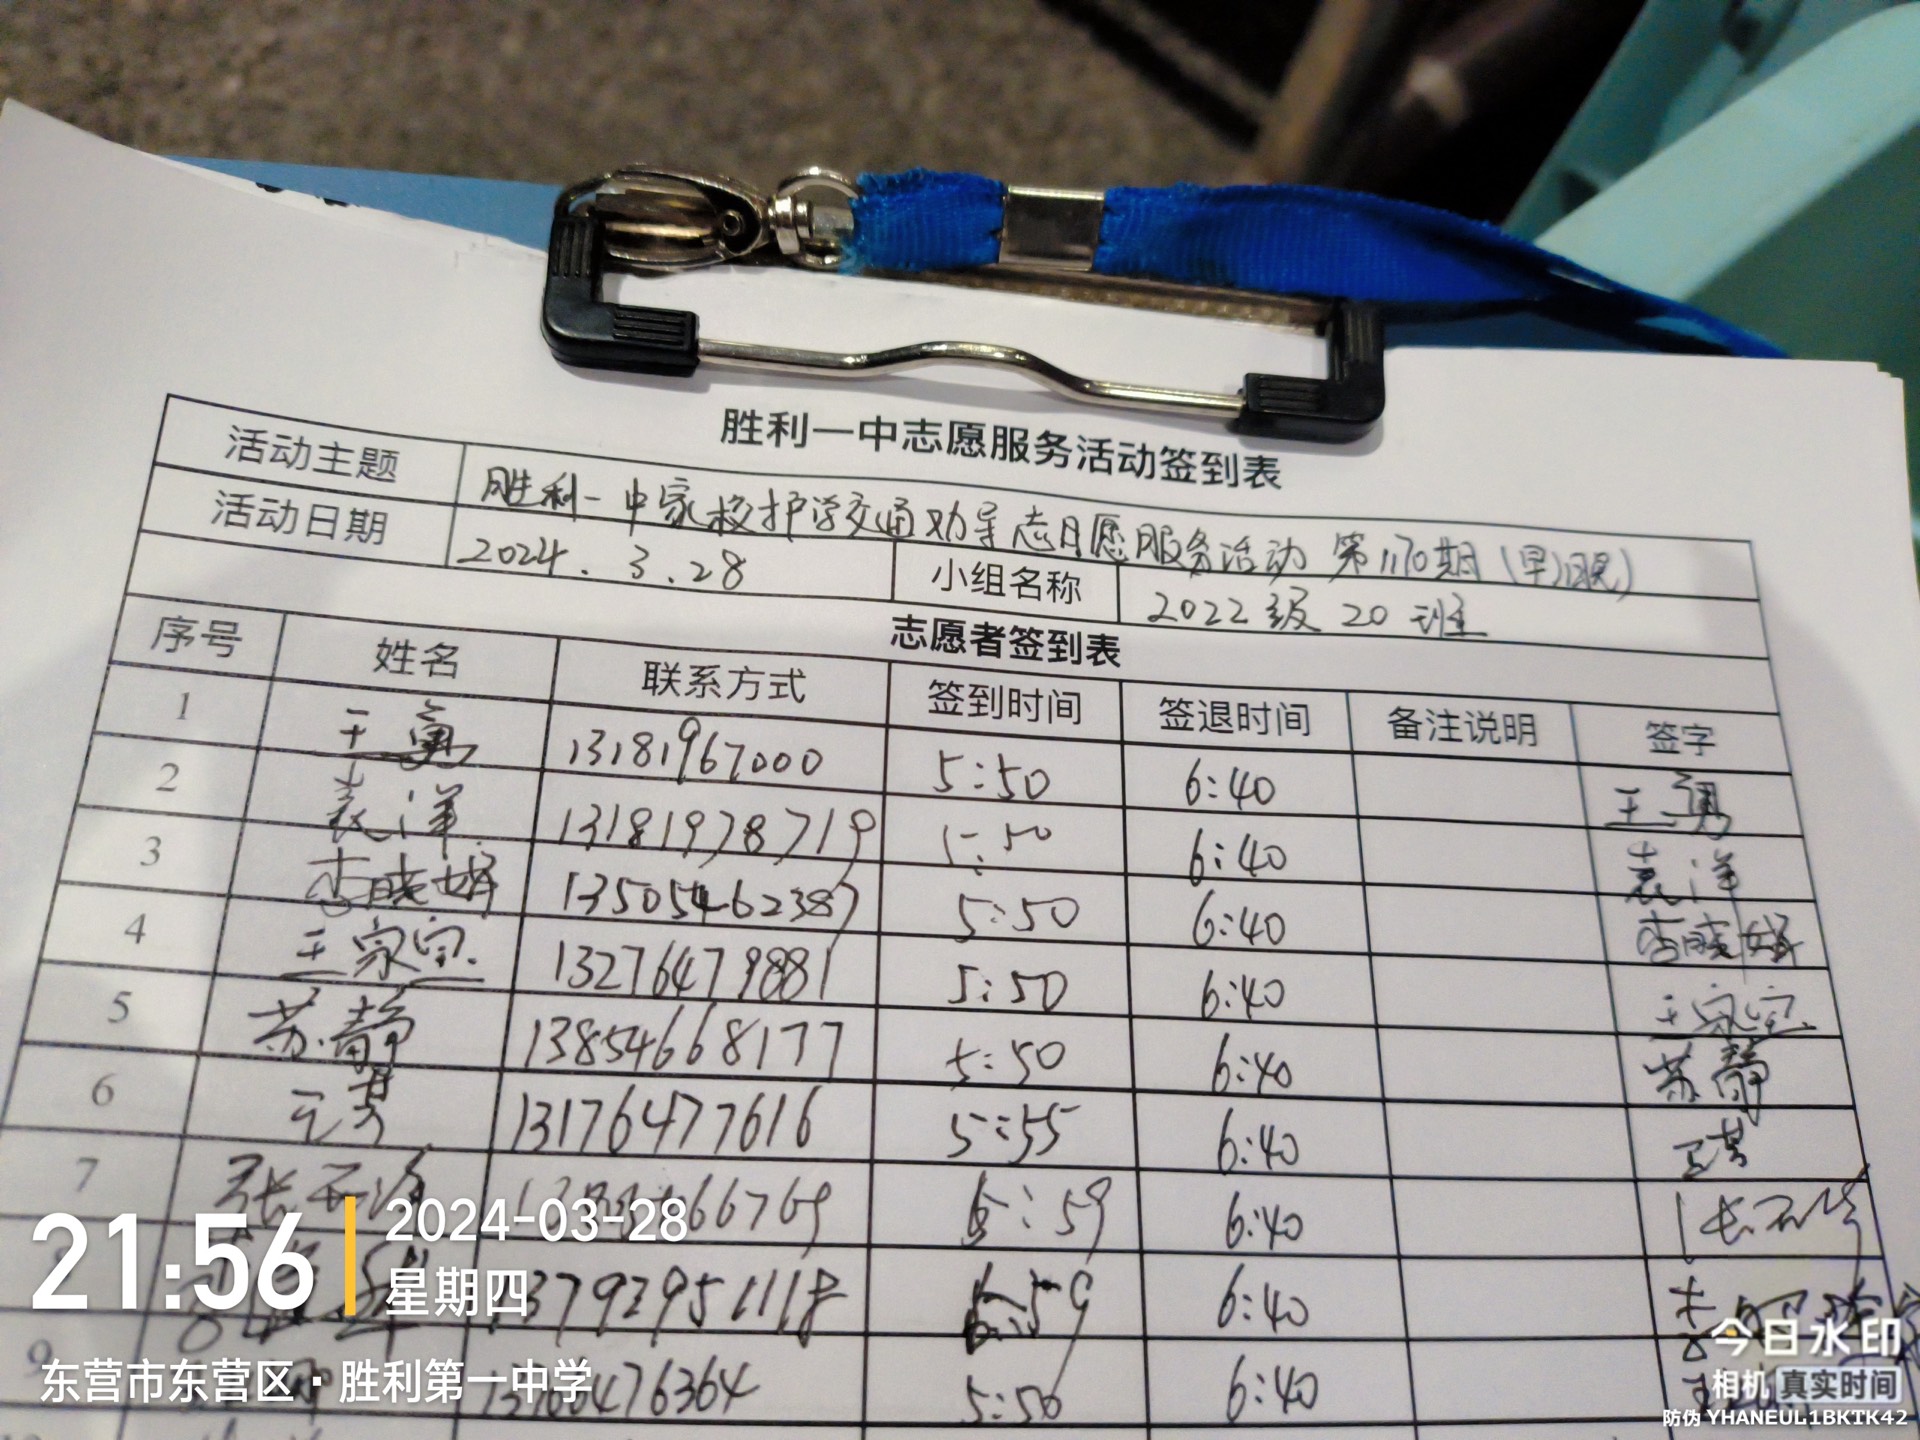 胜利一中志愿服务活动签到表
活动主题 胜利一中家校护学交通劝导志愿服务活动 第1170期(早)
活动日期 2024.3.28 小组名称 2022级20班
志愿者签到表
序号 姓名 联系方式 签到时间 签退时间 备注说明 签字
1 王勇 13181967000 5:50 6:40 王勇
2 袁洋 13181978719 5:50 6:40 袁洋
3 李晓娟 13505462387 5:50 6:40 李晓娟
4 王家宝 13276479881 5:50 6:40 王家宝
5 苏静 13854668177 5:50 6:40 苏静
6 13176477616 5:55 6:40
7 张 5:59 6:40
8 5:59 6:40
9 5:50 6:40
21:56
2024-03-28
星期四
东营市东营区·胜利第一中学
今日水印
相机 真实时间
防伪 YHANEUL1BKTK42